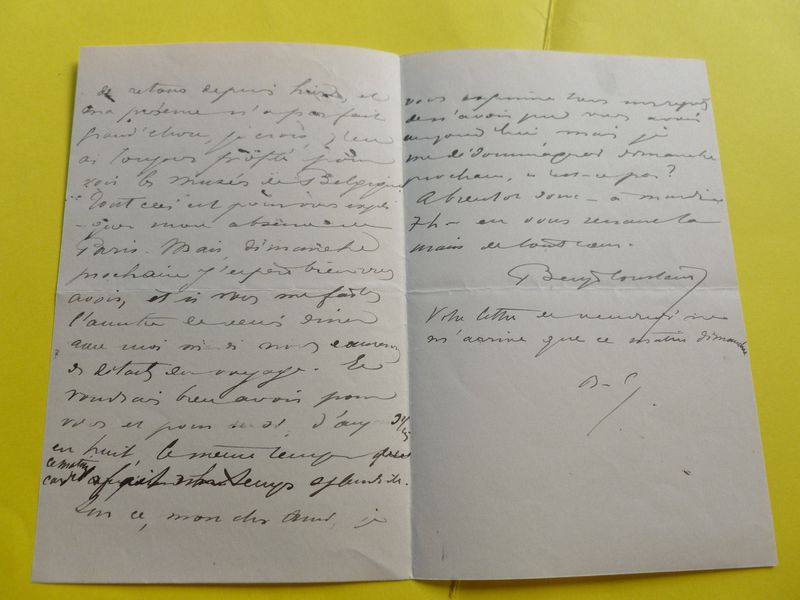 de retour depuis hier, et
ma présence n'a pas fait
grand'chose, je crois, j'en
ai toujours profité pour
voir les musées de Belgique
Tout ceci est pour vous expli
-quer mon absence de
Paris. Mais, dimanche
prochain j'espère bien vous
avoir, et si vous me faites
l'amitié de venir dîner
avec moi nous causerons
de détails du voyage. Je
voudrais bien avoir pour
vous et pour moi, d'auj
en huit, le même temps
ce matin
car il a fait un temps splendide.
Sur ce, mon cher ami, je
vous exprime tous mes regrets
de n'avoir pu vous avoir
aujourd'hui mais je
me dédommagerai dimanche
prochain, n'est-ce pas?
A bientôt donc - à mardi
7h - en vous serrant la
main de tout cœur.
Benj Constant
Votre lettre de vendredi ne
m'arrive que ce matin dimanche
B-C.